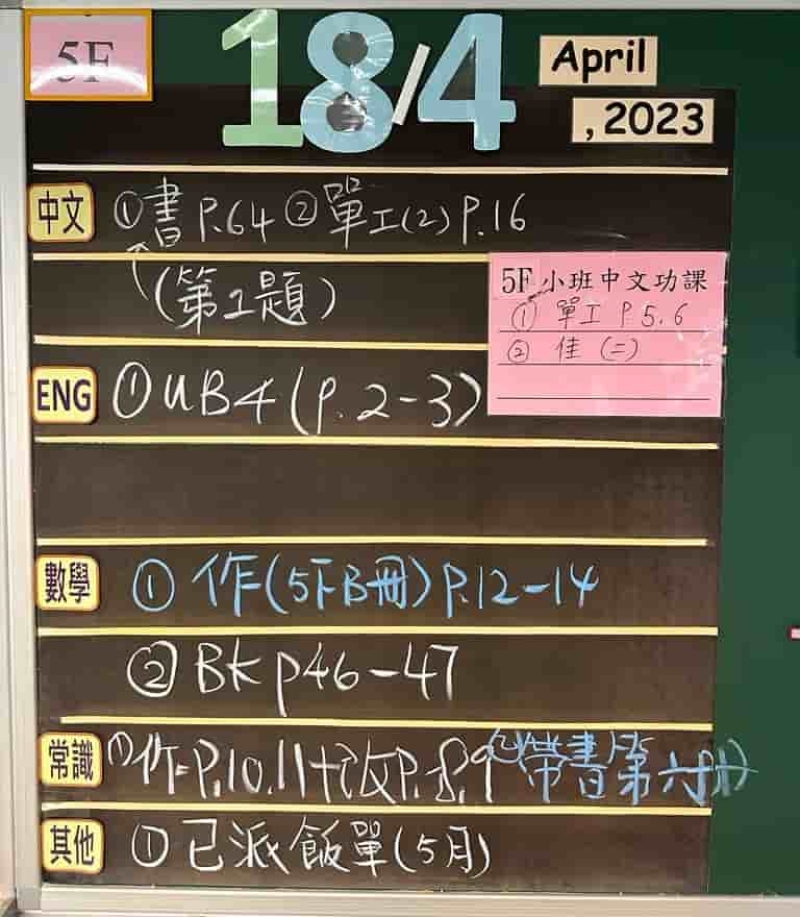 5F
18/4
April
,2023
中文 ①書 P.64 ②單工(2) P.16
(第2題)
5F 小班中文功課
① 單工 P 5.6
② 佳 (二)
ENG ① UB4 (P.2-3)
數學 ① 作(5下B冊) P.12-14
② BK p46-47
常識 ①作 P.10.11+改P.8,9 ②帶書第六冊
其他 ① 已派飯單(5月)